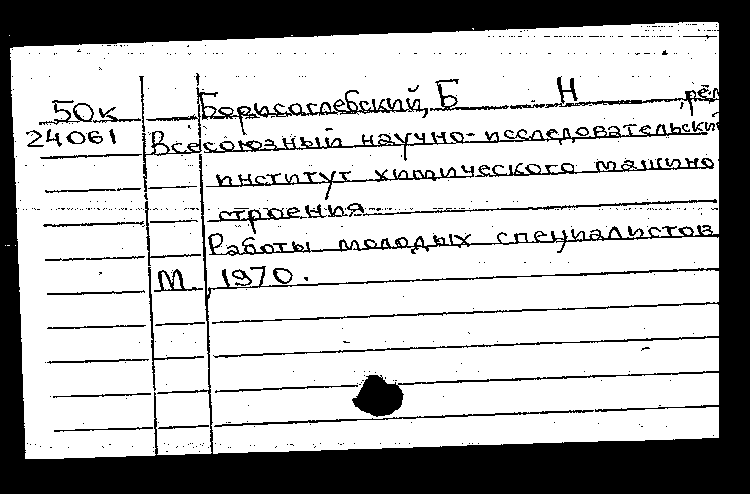 50к Борисоглебский, Б Н , ред
24061 Всесоюзный научно-исследовательский
институт химического машино
строения
Работы молодых специалистов
М , 1970.